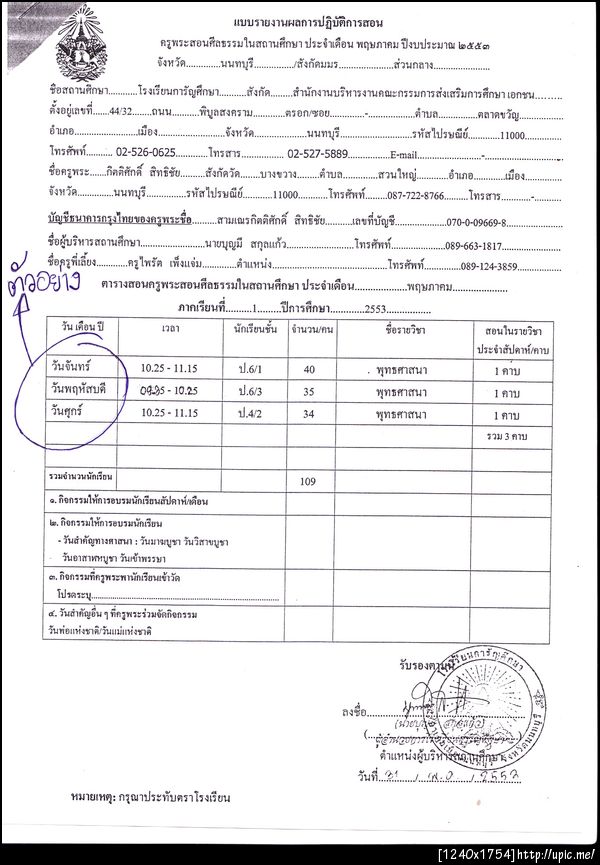 แบบรายงานผลการปฏิบัติการสอน
ครูพระสอนศีลธรรมในสถานศึกษา ประจำเดือน พฤษภาคม ปีงบประมาณ ๒๕๕๓
จังหวัด............นนทบุรี............/สังกัดมมร..................ส่วนกลาง........................
ชื่อสถานศึกษา...........โรงเรียนการัญศึกษา..........สังกัด........สำนักงานบริหารงานคณะกรรมการส่งเสริมการศึกษา เอกชน........
ตั้งอยู่เลขที่......44/32......ถนน..........พิบูลสงคราม............ตรอก/ซอย............-...............ตำบล.............ตลาดขวัญ...............
อำเภอ......................เมือง......................จังหวัด.................นนทบุรี......................รหัสไปรษณีย์...........11000.............
โทรศัพท์.......... 02-526-0625............โทรสาร............ 02-527-5889...............E-mail......................-..........................
ชื่อครูพระ......กิตติศักดิ์ สิทธิชัย.......สังกัดวัด.......บางขวาง........ตำบล...........สวนใหญ่...........อำเภอ..........เมือง..........
จังหวัด..........นนทบุรี..........รหัสไปรษณีย์..........11000..........โทรศัพท์.........087-722-8766..........โทรสาร..........-..........
บัญชีธนาคารกรุงไทยของครูพระชื่อ.........สามเณรกิตติศักดิ์ สิทธิชัย..........เลขที่บัญชี..................070-0-09669-8................
ชื่อผู้บริหารสถานศึกษา.......................นายบุญมี สกุลแก้ว.......................โทรศัพท์..................089-663-1817..................
ชื่อครูพี่เลี้ยง...............ครูไพรัต เพ็งแจ่ม..............ตำแหน่ง.......................................โทรศัพท์................089-124-3859................
ตัวอย่าง
ตารางสอนครูพระสอนศีลธรรมในสถานศึกษา ประจำเดือน..................พฤษภาคม..................
ภาคเรียนที่.........1........ปีการศึกษา..........2553...............
วัน เดือน ปี เวลา นักเรียนชั้น จำนวน/คน ชื่อรายวิชา สอนในรายวิชา
ประจำสัปดาห์/คาบ
วันจันทร์ 10.25 - 11.15 ป.6/1 40 . พุทธศาสนา 1 คาบ
วันพฤหัสบดี - 10.25 ป.6/3 35 พุทธศาสนา 1 คาบ
วันศุกร์ 10.25 - 11.15 ป.4/2 34 พุทธศาสนา 1 คาบ
รวม 3 คาบ
รวมจำนวนนักเรียน 109
๑. กิจกรรมให้การอบรมนักเรียนสัปดาห์/เดือน
๒. กิจกรรมให้การอบรมนักเรียน
- วันสำคัญทางศาสนา : วันมาฆบูชา วันวิสาขบูชา
วันอาสาฬหบูชา วันเข้าพรรษา
๓. กิจกรรมที่ครูพระพานักเรียนเข้าวัด
โปรดระบุ............................................................
๔. วันสำคัญอื่น ๆ ที่ครูพระร่วมจัดกิจกรรม
วันพ่อแห่งชาติ/วันแม่แห่งชาติ
รับรองตามนี้
โรงเรียนการัญศึกษา
ลงชื่อ
ตำแหน่งผู้บริหารสถานศึกษา
วันที่ 31 / พ.ค / 2553
หมายเหตุ: กรุณาประทับตราโรงเรียน
[1240x1754]http://upic.me/